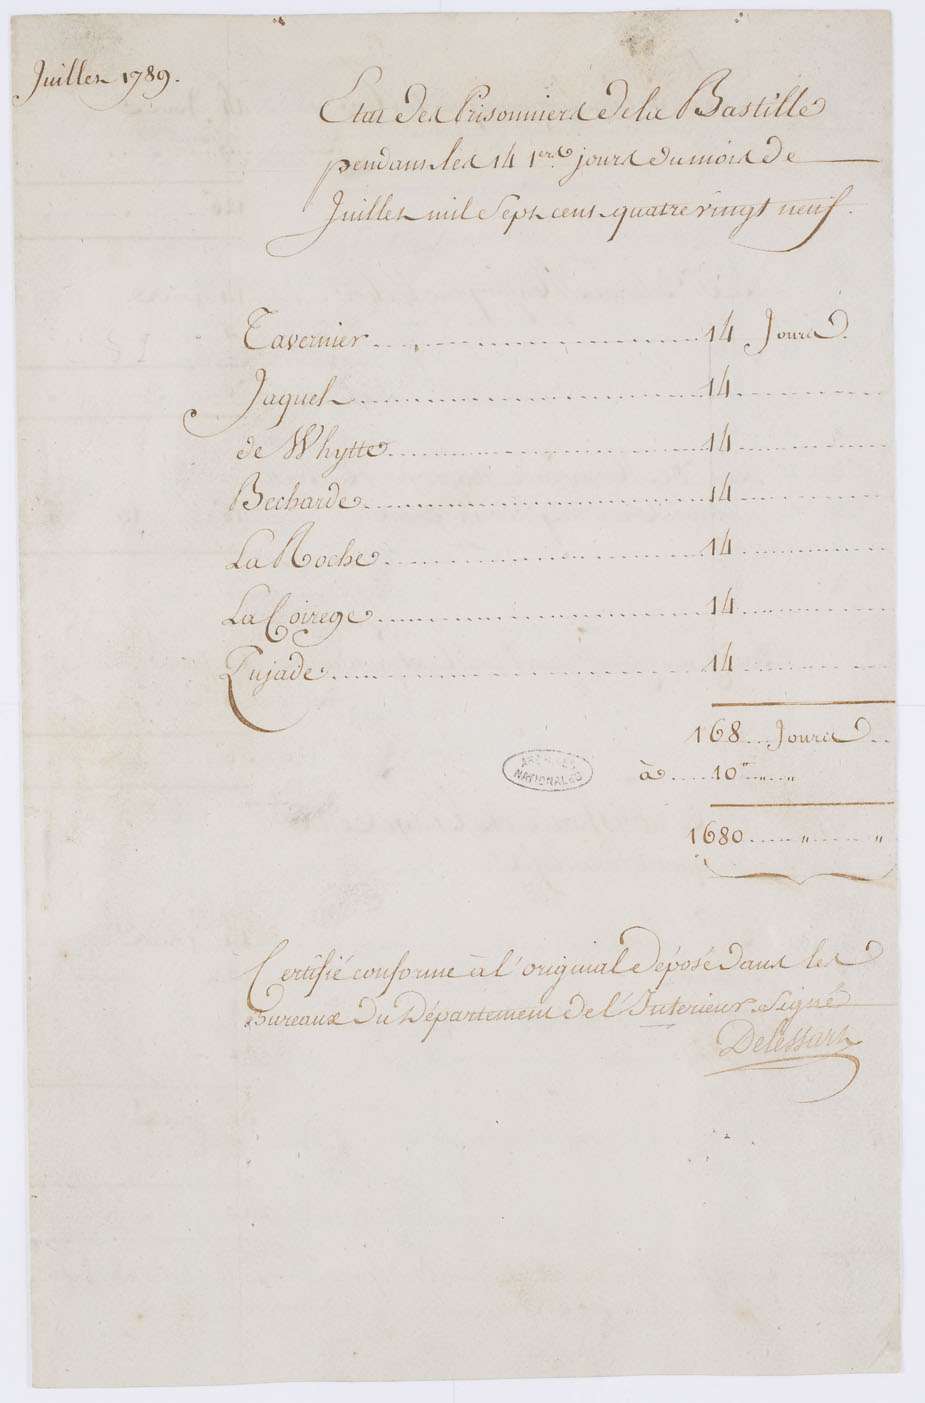 Juillet 1789.
Etat des Prisonniers de la Bastille
pendant les 14 1ers jours du mois de
Juillet mil Sept cent quatre vingt neuf.
Tavernier 14 Jours.
Jaquet 14
de Whytte 14
Bechade 14
La Roche 14
La Coirege 14
Pujade 14
168 Jours
à 10 " "
1680 " "
ARCHIVES
NATIONALES
Certifié conforme à l'original déposé dans les
Bureaux du Département de l'Interieur Signé
Delessart